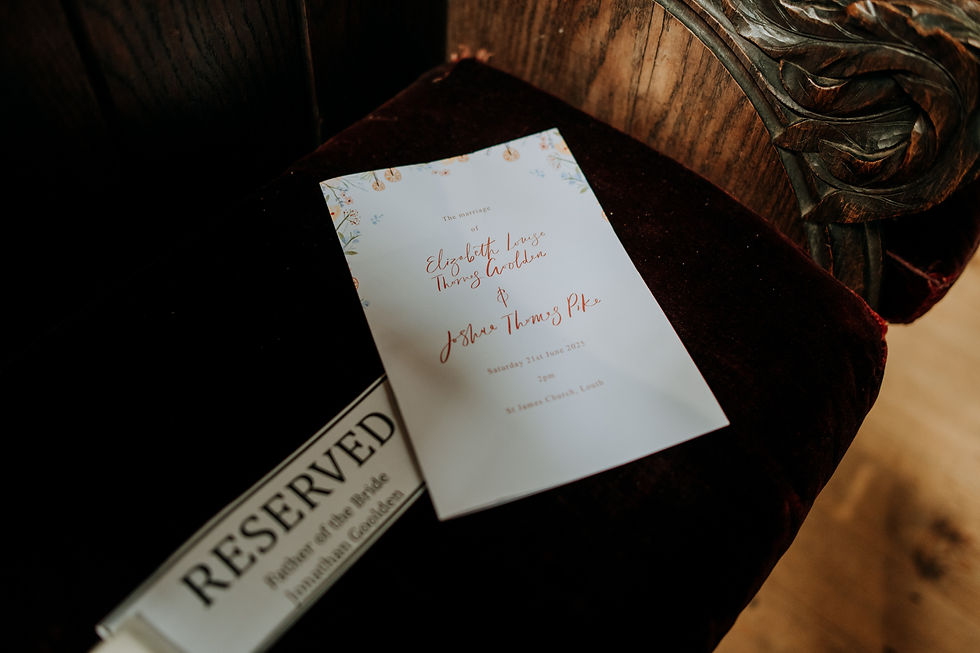 The marriage
of
Elizabeth Louise
Thomas Goolden
&
Joshua Thomas Pike
Saturday 21st June 2025
2pm
St James Church, Louth
RESERVED
Father of the Bride
Jonathan Goolden